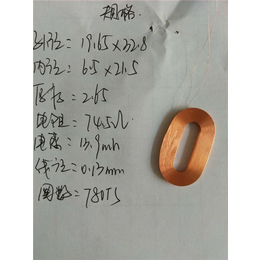 规格.
外径=19.65×32.8
内径=6.5×21.5
厚度=2.65
电阻=74.5Ω
电感=13.9mh
线径=0.13mm
圈数=780TS